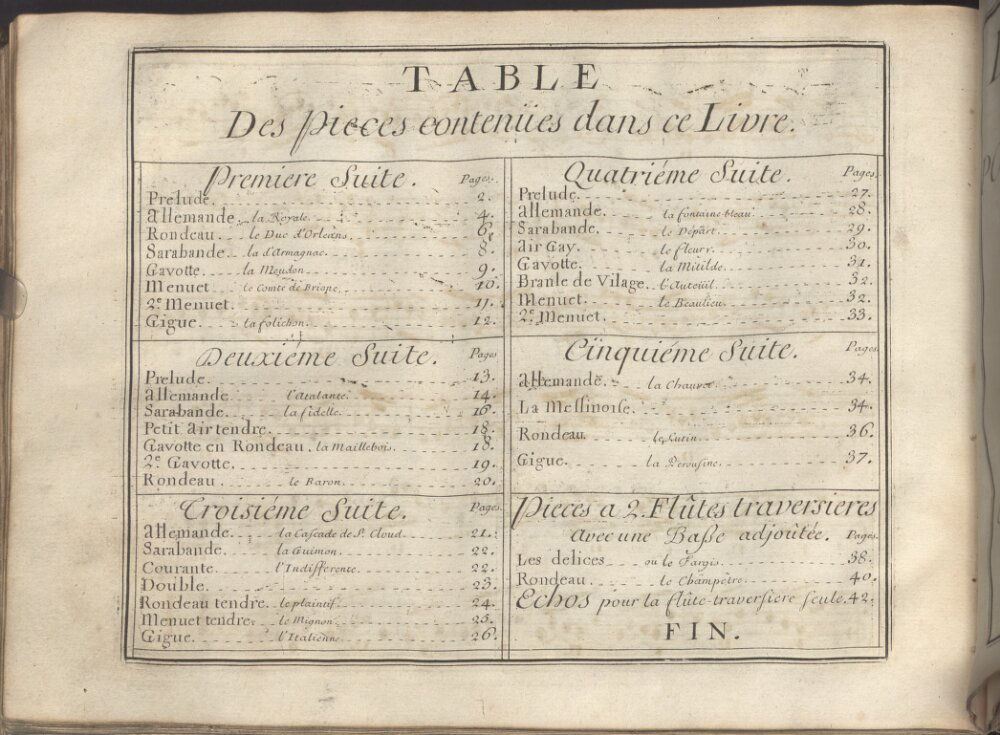 TABLE
Des Pieces contenües dans ce Livre.
Premiere Suite. Pages.
Prelude. 2.
Allemande. la Royale. 4.
Rondeau. le Duc d'Orleans. 6.
Sarabande. la d'Armagnac. 8.
Gavotte. la Meudon. 9.
Menuet. le Comte de Brione. 10.
2.e Menuet. 11.
Gigue. la folichon. 12.
Deuxiéme Suite. Pages
Prelude. 13.
Allemande. l'Atalante. 14.
Sarabande. la fidelle. 16.
Petit Air tendre. 18.
Gavotte en Rondeau. la Maillebois. 18.
2.e Gavotte. 19.
Rondeau. le Baron. 20.
Troisiéme Suite. Pages.
Allemande. la Cascade de St. Cloud. 21.
Sarabande. la Guimon. 22.
Courante. l'Indifference. 22.
Double. 23.
Rondeau tendre. le plaintif. 24.
Menuet tendre. le Mignon. 25.
Gigue. l'Italienne. 26.
Quatriéme Suite. Pages.
Prelude. 27.
Allemande. la fontaine-bleau. 28.
Sarabande. le Départ. 29.
Air Gay. le fleury. 30.
Gavotte. la Mitilde. 31.
Branle de Vilage. l'Auteüil. 32.
Menuet. le Beaulieu. 32.
2.e Menuet. 33.
Cinquiéme Suite. Pages
Allemande. la Chauvet. 34.
La Messinoise. 34.
Rondeau. 36.
Gigue. la Perousine. 37.
Pieces a 2. Flûtes traversieres
Avec une Basse adjoûtée. Pages.
Les delices ou le Fargis. 38.
Rondeau. le Champêtre. 40.
Echos pour la flûte-traversiere seule. 42.
FIN.